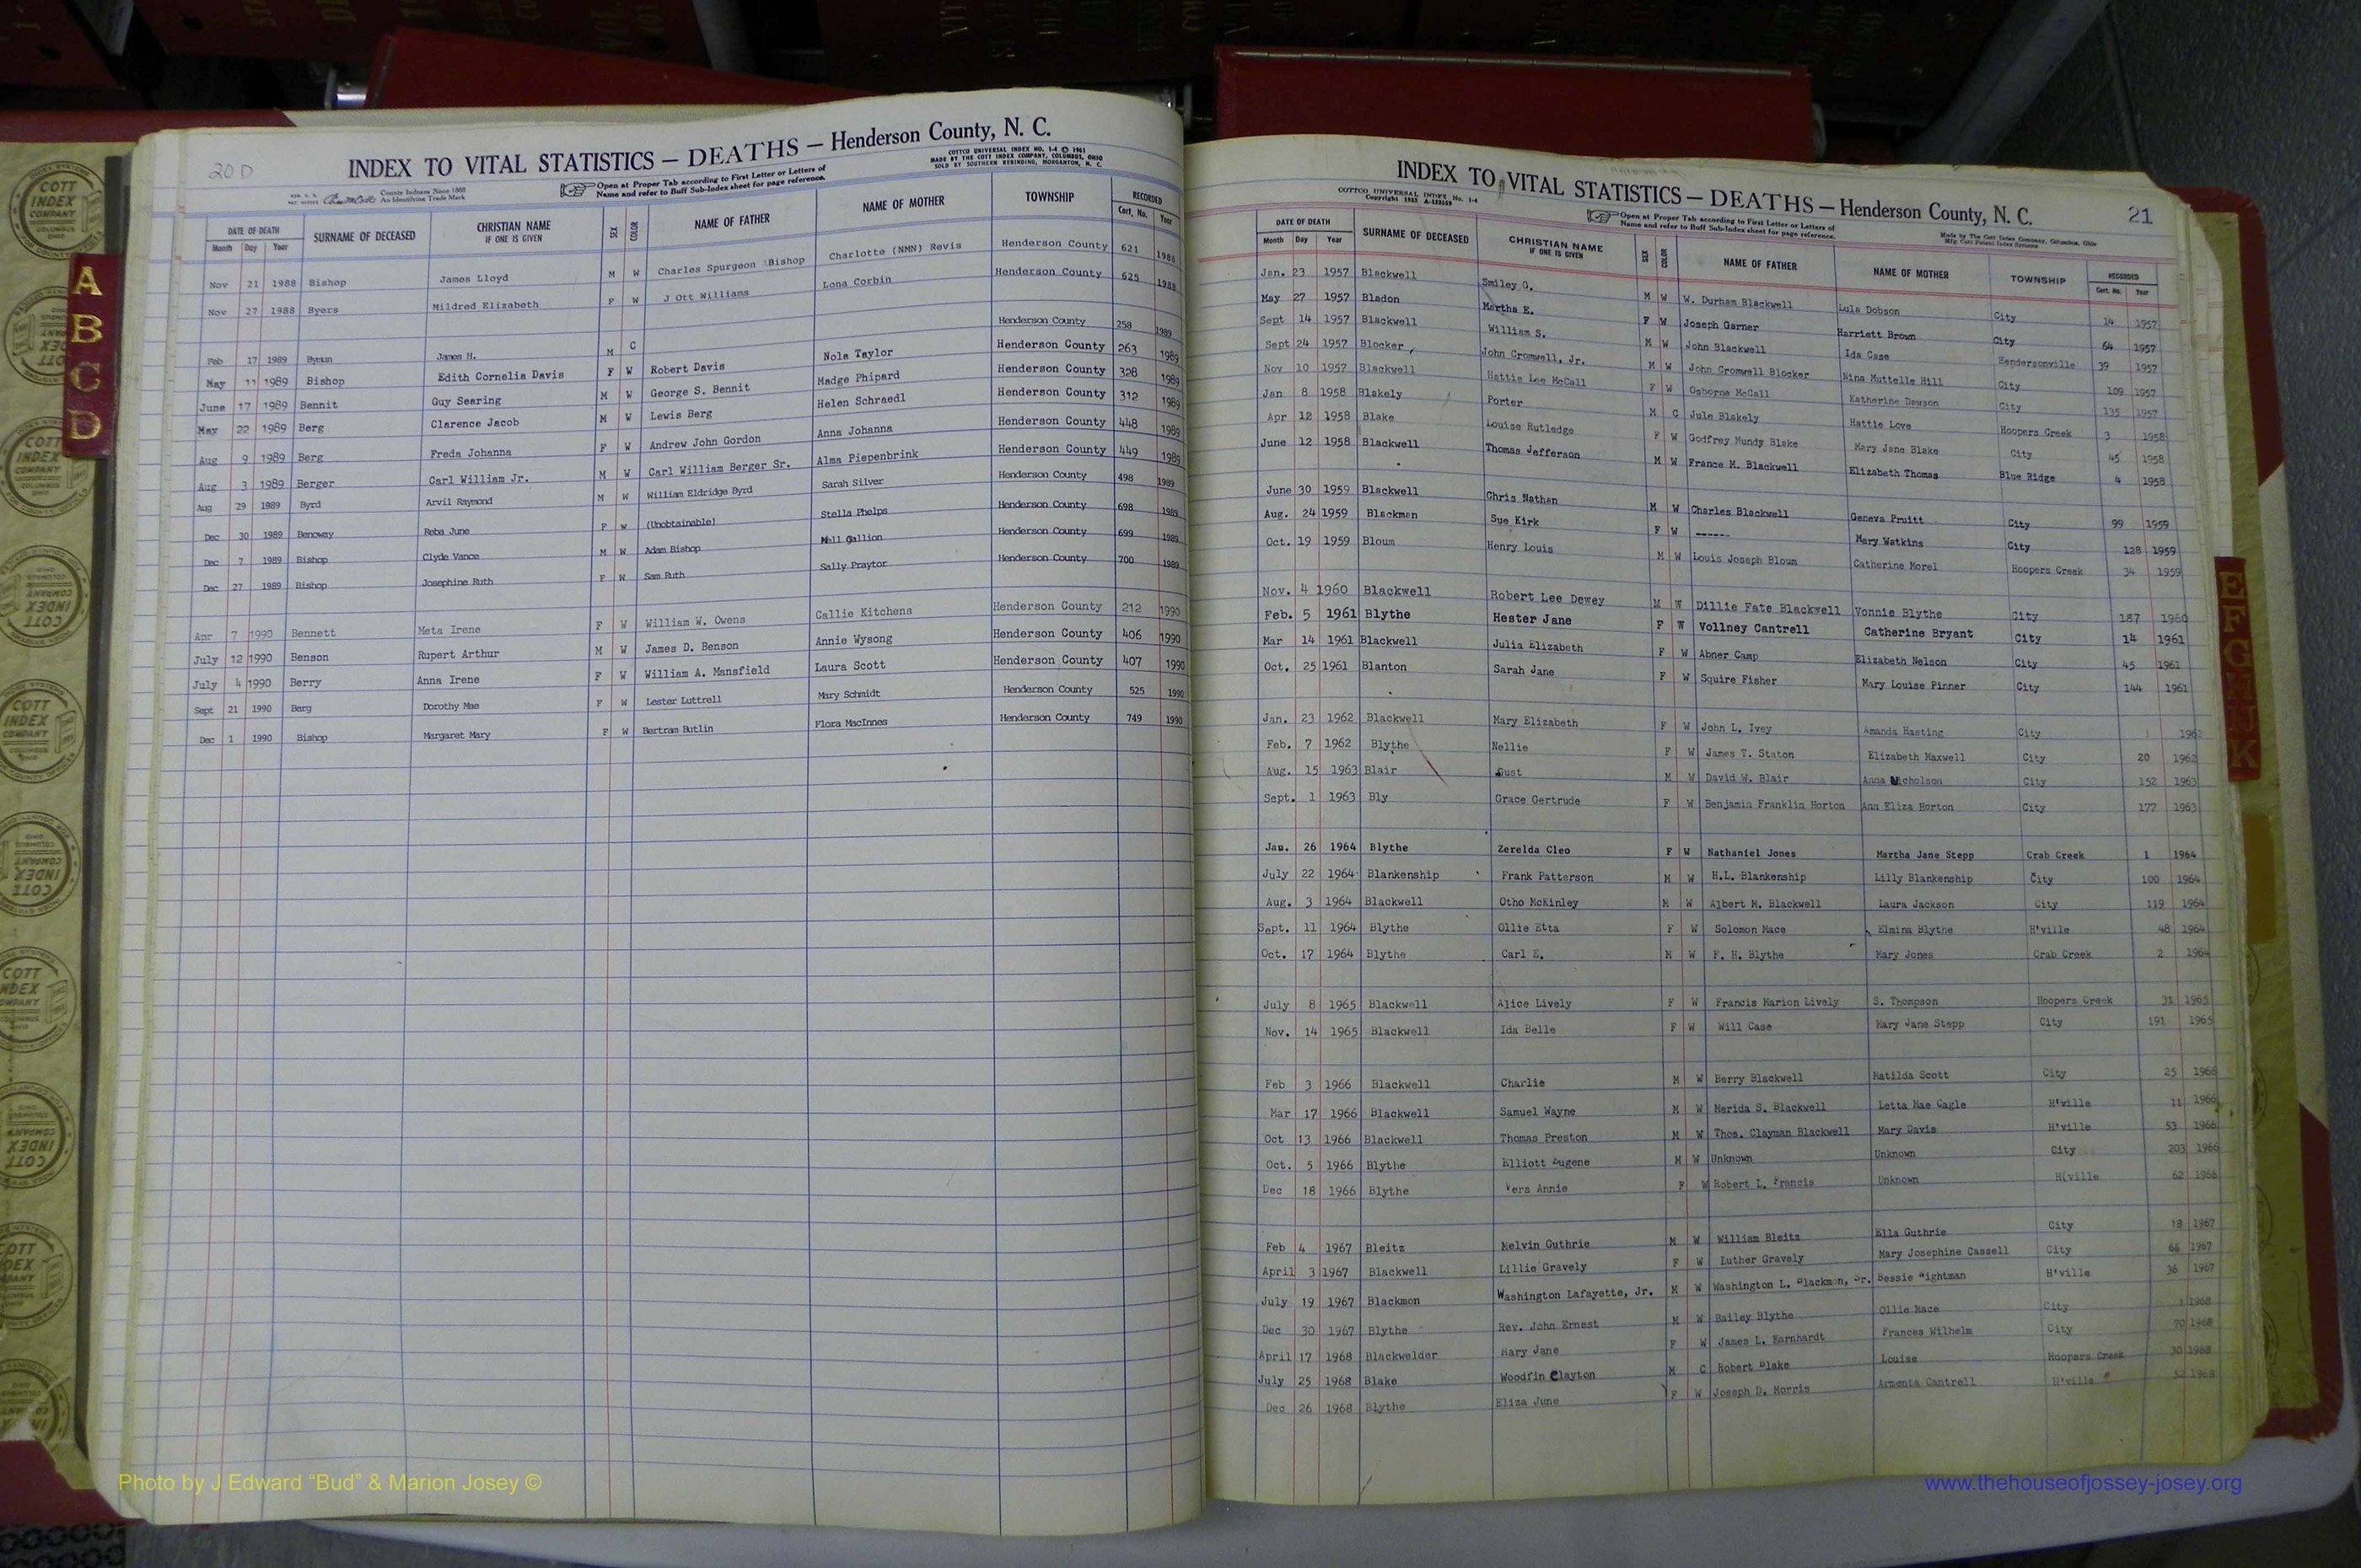 20 D
INDEX TO VITAL STATISTICS — DEATHS — Henderson County, N. C.
COTTCO UNIVERSAL INDEX NO. 1-4 © 1961
MADE BY THE COTT INDEX COMPANY, COLUMBUS, OHIO
SOLD BY SOUTHERN REBINDING, MORGANTON, N. C.
County Indexes Since 1888
An Identifying Trade Mark
Open at Proper Tab according to First Letter or Letters of
Name and refer to Buff Sub-Index sheet for page reference.
DATE OF DEATH SURNAME OF DECEASED CHRISTIAN NAME IF ONE IS GIVEN SEX COLOR NAME OF FATHER NAME OF MOTHER TOWNSHIP RECORDED
Month Day Year Cert. No. Year
Nov 21 1988 Bishop James Lloyd M W Charles Spurgeon Bishop Charlotte (NMN) Revis Henderson County 621 1988
Nov 27 1988 Byers Mildred Elizabeth F W J Ott Williams Lona Corbin Henderson County 625 1988
Feb 17 1989 Bynun James H. M C Henderson County 258 1989
May 11 1989 Bishop Edith Cornelia Davis F W Robert Davis Nola Taylor Henderson County 263 1989
June 17 1989 Bennit Guy Searing M W George S. Bennit Madge Phipard Henderson County 328 1989
May 22 1989 Berg Clarence Jacob M W Lewis Berg Helen Schraedl Henderson County 312 1989
Aug 9 1989 Berg Freda Johanna F W Andrew John Gordon Anna Johanna Henderson County 448 1989
Aug 3 1989 Berger Carl William Jr. M W Carl William Berger Sr. Alma Piepenbrink Henderson County 449 1989
Aug 29 1989 Byrd Arvil Raymond M W William Eldridge Byrd Sarah Silver Henderson County 498 1989
Dec 30 1989 Benoway Reba June F W (Unobtainable) Stella Phelps Henderson County 698 1989
Dec 7 1989 Bishop Clyde Vance M W Adam Bishop Nell Gallion Henderson County 699 1989
Dec 27 1989 Bishop Josephine Ruth F W Sam Ruth Sally Praytor Henderson County 700 1989
Apr 7 1990 Bennett Meta Irene F W William W. Owens Callie Kitchens Henderson County 212 1990
July 12 1990 Benson Rupert Arthur M W James D. Benson Annie Wysong Henderson County 406 1990
July 4 1990 Berry Anna Irene F W William A. Mansfield Laura Scott Henderson County 407 1990
Sept 21 1990 Berg Dorothy Mae F W Lester Luttrell Mary Schmidt Henderson County 525 1990
Dec 1 1990 Bishop Margaret Mary F W Bertram Butlin Flora MacInnes Henderson County 749 1990
A
B
C
D
Photo by J Edward “Bud” & Marion Josey ©
INDEX TO VITAL STATISTICS — DEATHS — Henderson County, N. C.
21
COTTCO UNIVERSAL INDEX No. 1-4
Open at Proper Tab according to First Letter or Letters of
Name and refer to Buff Sub-Index sheet for page reference.
Made by The Cott Index Company, Columbus, Ohio
DATE OF DEATH SURNAME OF DECEASED CHRISTIAN NAME IF ONE IS GIVEN SEX COLOR NAME OF FATHER NAME OF MOTHER TOWNSHIP RECORDED
Month Day Year Cert. No. Year
Jan. 23 1957 Blackwell Smiley O. M W W. Durham Blackwell Lula Dobson City 14 1957
May 27 1957 Bladon Martha E. F W Joseph Garner Harriett Brown City 64 1957
Sept 14 1957 Blackwell William S. M W John Blackwell Ida Case Hendersonville 39 1957
Sept 24 1957 Blocker John Cromwell, Jr. M W John Cromwell Blocker Nina Muttelle Hill City 109 1957
Nov 10 1957 Blackwell Hattie Lee McCall F W Osborne McCall Katherine Dawson City 135 1957
Jan 8 1958 Blakely Porter M C Jule Blakely Hattie Love Hoopers Creek 3 1958
Apr 12 1958 Blake Louise Rutledge F W Godfrey Mundy Blake Mary Jane Blake City 45 1958
June 12 1958 Blackwell Thomas Jefferson M W France M. Blackwell Elizabeth Thomas Blue Ridge 4 1958
June 30 1959 Blackwell Chris Nathan M W Charles Blackwell Geneva Pruitt City 99 1959
Aug. 24 1959 Blackman Sue Kirk F W ------ Mary Watkins City 128 1959
Oct. 19 1959 Bloum Henry Louis M W Louis Joseph Bloum Catherine Morel Hoopers Creek 34 1959
Nov. 4 1960 Blackwell Robert Lee Dewey M W Dillie Fate Blackwell Vonnie Blythe City 187 1960
Feb. 5 1961 Blythe Hester Jane F W Vollney Cantrell Catherine Bryant City 14 1961
Mar 14 1961 Blackwell Julia Elizabeth F W Abner Camp Elizabeth Nelson City 45 1961
Oct. 25 1961 Blanton Sarah Jane F W Squire Fisher Mary Louise Pinner City 144 1961
Jan. 23 1962 Blackwell Mary Elizabeth F W John L. Ivey Amanda Hasting City 1 1962
Feb. 7 1962 Blythe Nellie F W James T. Staton Elizabeth Maxwell City 20 1962
Aug. 15 1963 Blair Gust M W David W. Blair Anna Nicholson City 152 1963
Sept. 1 1963 Bly Grace Gertrude F W Benjamin Franklin Horton Ann Eliza Horton City 177 1963
Jan. 26 1964 Blythe Zerelda Cleo F W Nathaniel Jones Martha Jane Stepp Crab Creek 1 1964
July 22 1964 Blankenship Frank Patterson M W H.L. Blankenship Lilly Blankenship City 100 1964
Aug. 3 1964 Blackwell Otho McKinley M W Albert M. Blackwell Laura Jackson City 119 1964
Sept. 11 1964 Blythe Ollie Etta F W Solomon Mace Elmina Blythe H'ville 48 1964
Oct. 17 1964 Blythe Carl E. M W F. H. Blythe Mary Jones Crab Creek 2 1964
July 8 1965 Blackwell Alice Lively F W Francis Marion Lively S. Thompson Hoopers Creek 31 1965
Nov. 14 1965 Blackwell Ida Belle F W Will Case Mary Jane Stepp City 191 1965
Feb 3 1966 Blackwell Charlie M W Berry Blackwell Matilda Scott City 25 1966
Mar 17 1966 Blackwell Samuel Wayne M W Merida S. Blackwell Letta Mae Cagle H'ville 11 1966
Oct 13 1966 Blackwell Thomas Preston M W Thos. Clayman Blackwell Mary Davis H'ville 53 1966
Oct. 5 1966 Blythe Elliott Eugene M W Unknown Unknown City 203 1966
Dec 18 1966 Blythe Vera Annie F W Robert L. Francis Unknown H(ville 62 1966
Feb 4 1967 Bleitz Melvin Guthrie M W William Bleitz Ella Guthrie City 18 1967
April 3 1967 Blackwell Lillie Gravely F W Luther Gravely Mary Josephine Cassell City 66 1967
July 19 1967 Blackmon Washington Lafayette, Jr. M W Washington L. Blackmon, Sr. Bessie Wightman H'ville 36 1967
Dec 30 1967 Blythe Rev. John Ernest M W Bailey Blythe Ollie Mace City 1 1968
April 17 1968 Blackwelder Mary Jane F W James L. Earnhardt Frances Wilhelm City 70 1968
July 25 1968 Blake Woodfin Clayton M C Robert Blake Louise Hoopers Creek 30 1968
Dec 26 1968 Blythe Eliza June F W Joseph D. Morris Armenta Cantrell H'ville 52 1968
www.thehouseofjossey-josey.org